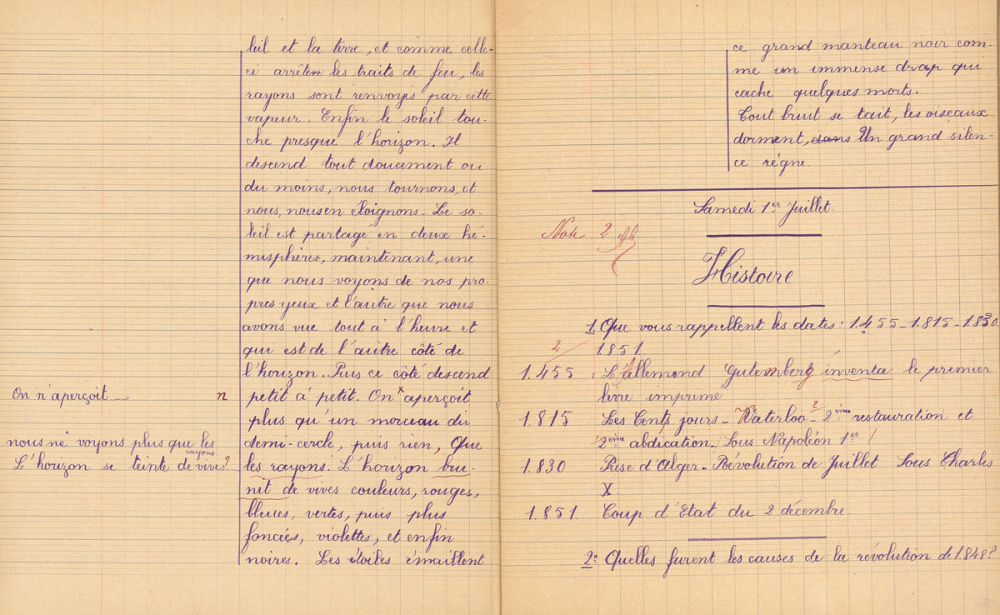 leil et la terre, et comme celle-
ci arrêten les traits de feu, les
rayons sont renvoyés par cette
vapeur. Enfin le soleil tou-
che presque l'horizon. Il
descend tout doucement ou
du moins, nous tournons, et
nous, nous en éloignons. Le so-
leil est partagé en deux hé-
misphères, maintenant, une
que nous voyons de nos pro-
pres yeux et l'autre que nous
avons vue tout à l'heure et
qui est de l'autre côté de
l'horizon. Puis ce côté descend
On n'aperçoit n petit à petit. On x aperçoit
plus qu'un morceau du
nous ne voyons plus que les demi-cercle, puis rien, Que
rayons.
L'horizon se teinte de vives? les rayons. L'horizon bru-
nit de vives couleurs, rouges,
bleues, vertes, puis plus
foncées, violettes, et enfin
noires. Les étoiles émaillent
ce grand manteau noir com-
me un immense drap qui
cache quelques morts.
Tout bruit se tait, les oiseaux
dorment, dans Un grand silen-
ce règne.
Samedi 1er Juillet.
Note 2
Histoire
1. Que vous rappellent les dates: 1.455-1.815-1.830
2
1851
1.455 L'Allemand Gutemberg inventa le premier
livre imprimé
1815 Les Cents jours - Waterloo - 2 2ème restauration et
2ème abdication. Sous Napoléon 1er
1.830 Prise d'Alger - Révolution de Juillet Sous Charles
X.
1.851 Coup d'Etat du 2 décembre
2º Quelles furent les causes de la révolution de 1.848?